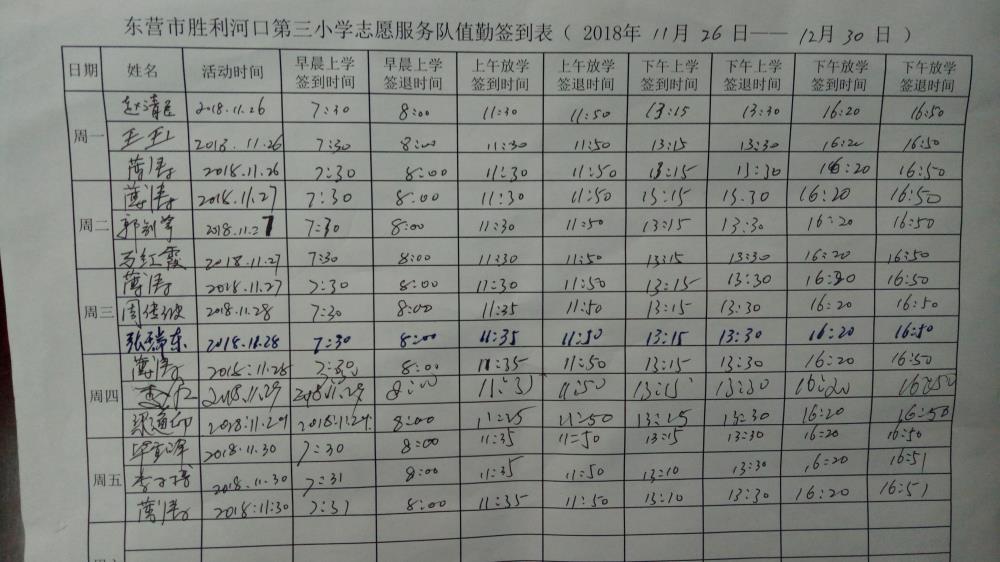 东营市胜利河口第三小学志愿服务队值勤签到表（ 2018年 11月 26 日—— 12月 30 日 ）
日期 姓名 活动时间 早晨上学签到时间 早晨上学签退时间 上午放学签到时间 上午放学签退时间 下午上学签到时间 下午上学签退时间 下午放学签到时间 下午放学签退时间
2018.11.26 7:30 8:00 11:30 11:50 13:15 13:30 16:20 16:50
周一 2018.11.26 7:30 8:00 11:30 11:50 13:15 13:30 16:20 16:50
薄涛 2018.11.26 7:30 8:00 11:30 11:50 13:15 13:30 16:20 16:50
薄涛 2018.11.27 7:30 8:00 11:30 11:50 13:15 13:30 16:20 16:50
周二 2018.11.27 7:30 8:00 11:30 11:50 13:15 13:30 16:20 16:50
红霞 2018.11.27 7:30 8:00 11:30 11:50 13:15 13:30 16:20 16:50
薄涛 2018.11.27 7:30 8:00 11:30 11:50 13:15 13:30 16:20 16:50
周三 2018.11.28 7:30 8:00 11:35 11:50 13:15 13:30 16:20 16:50
张瑞东 2018.11.28 7:30 8:00 11:35 11:50 13:15 13:30 16:20 16:50
薄涛 2018.11.28 7:30 8:00 11:35 11:50 13:15 13:30 16:20 16:50
周四 2018.11.29 2018.11.29 8:00 11:3 11:50 13:15 13:30 16:20 16:50
2018.11.29 2018.11.29 8:00 11:25 11:50 13:15 13:30 16:20 16:50
2018.11.30 7:30 8:00 11:35 11:50 13:15 13:30 16:20 16:50
周五 2018.11.30 7:31 8:00 11:35 11:50 13:10 13:30 16:20 16:51
薄涛 2018.11.30 7:31 8:00 11:35 11:50 13:10 13:30 16:20 16:51